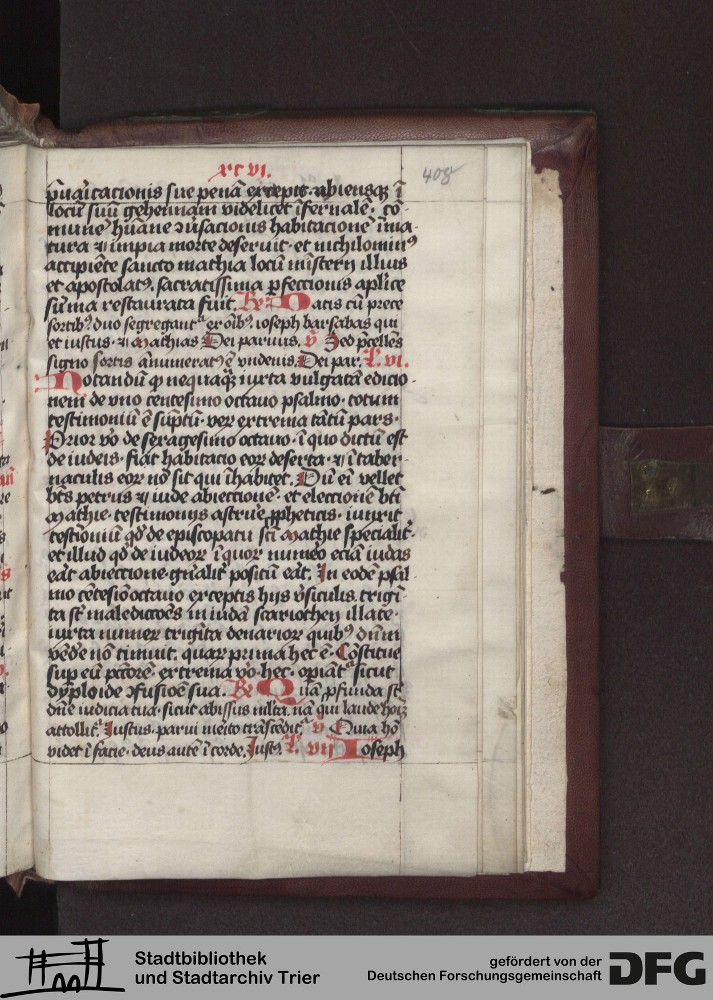 xc vi.
408
p̄uaricacionis sue penā excepit. abiensq̄ ī
locū suū gehennam videlicet īfernalē. cō-
mune hūane ɔ̄ūsacionis habitacionē īma-
tura et impia morte deseruit. et nichilominꝰ
accipiēte sancto mathia locū mīsterij illius
et apostolatꝰ. sacratissima ꝑfeccionis aplīce
sūma restaurata fuit. R̄ Datis cū prece
sortibꝰ. duo segregantᷣ ex oīb. ioseph barsabas qui
et iustus. et mathias Dei paruus. v̄ Sed p̄cellēs
signo sortis ānumeratꝰ ē vndenis. Dei par. L. vi.
Notandū ꝙ nequaq̄ iuxta vulgatā edicio-
nem de vno centesimo octauo psalmo. totum
testimoniū ē sūptū. veꝝ extrema tātū pars.
Prior v̊o de sexagesimo octauo. ī quo dictū est
de iudeis. fiat habitacio eoꝝ deserta. et ī taber-
naculis eoꝝ nō sit qui īhabitet. Dū eī vellet
bt̄s petrus et iude abieccionē. et eleccionē bt̄i
mathie. testimonijs astrue ꝓpheticis. iunxit
testīoniū qd̄ de episcopatu sc̄i mathie specialitᷣ.
et illud qd̄ de iudeoꝝ ī quoꝝ numēo eciā iudas
eāt abieccione. gn̄alitᷣ positū eāt. In eodē psal-
mo cētesīo octauo exceptis hijs v̄siculis. trigī-
ta st̄ malediccōēs in iudā scariothen illate.
iuxta numeꝝ trigīta denarioꝝ quibꝰ dn̄m
vēde nō timuit. quaꝝ prima hec ē. Cōstitue
sup eū pctōrē. extrema v̊o. hec. opiātᷣ sicut
dyploide ɔfusiōē sua. R̄ Quā ꝓfunda st̄
dn̄e iudicia tua. sicut abissus mlta. nā qui laude hoīꝝ
attollitᷣ. Iustus. parui meito trāscēditᷣ. v̄ Quia hō
videt ī facie. deus autē ī corde. Iustꝰ. L. vii Ioseph
Stadtbibliothek
und Stadtarchiv Trier
gefördert von der
Deutschen Forschungsgemeinschaft DFG